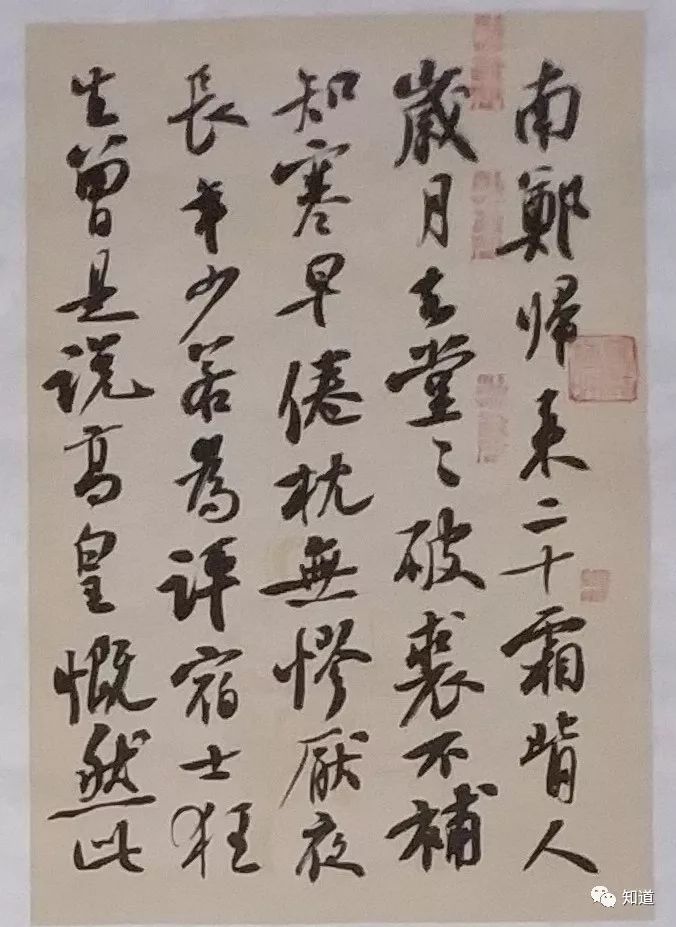 南鄭帰来二十霜背人
歲月去堂々破裘不補
知寒早倦枕無憀厭夜
長年少若為評宿士狂
生曾是説高皇慨然此
知道